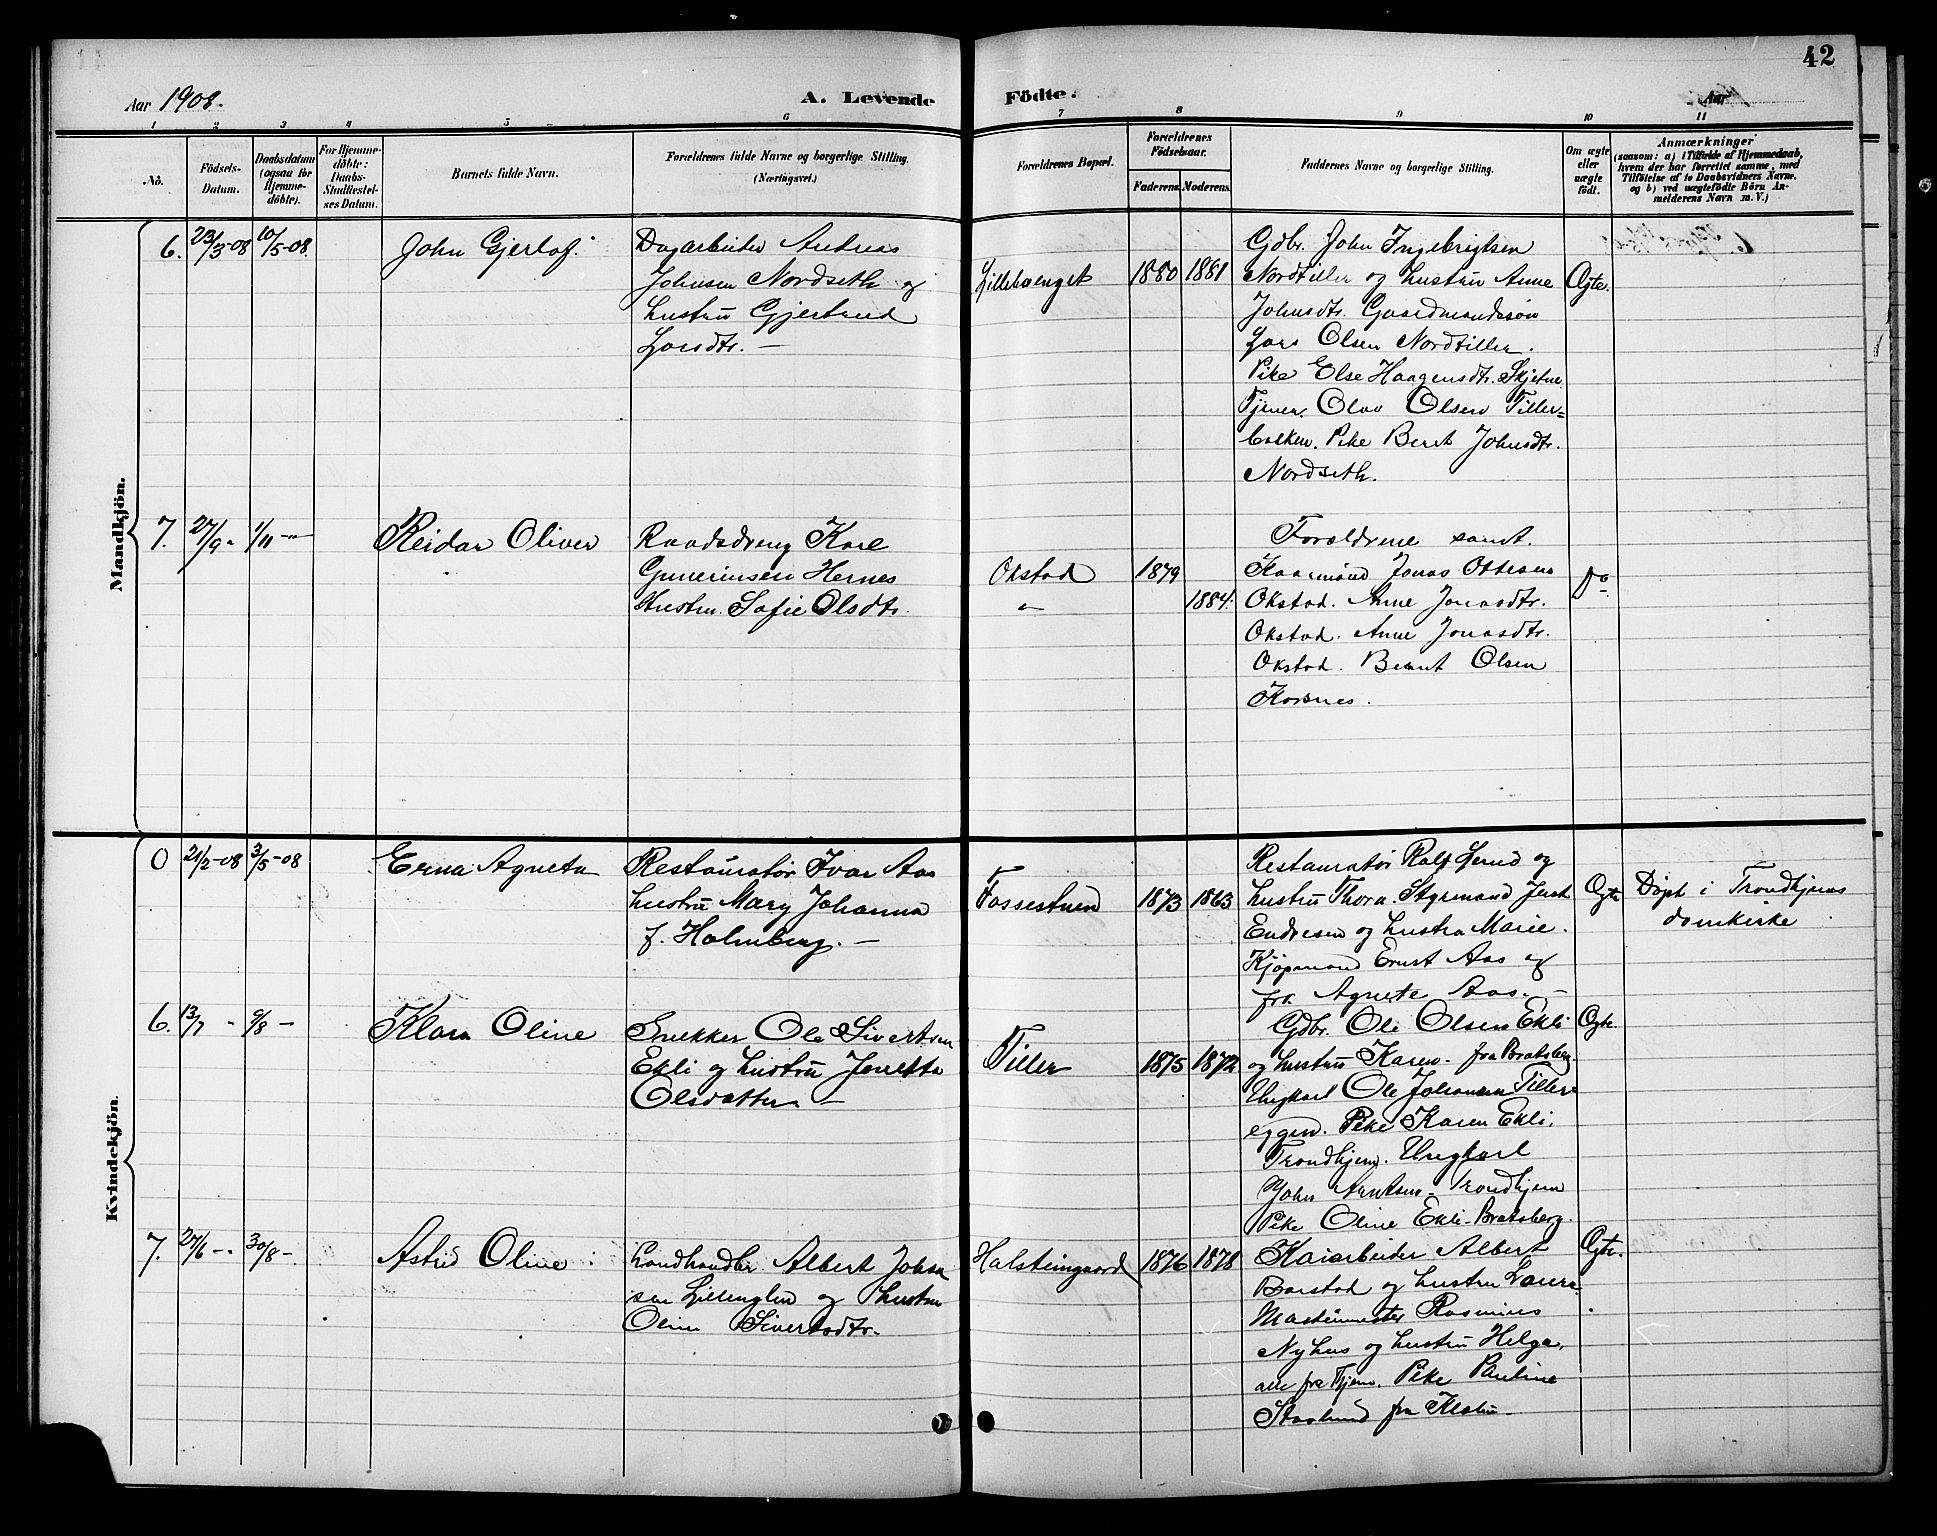 42
Aar 1908.
A. Levende Födte.
Aar
1 2 3 4 5 6 7 8 9 10 11
No.
Födsels-
Datum.
Daabsdatum
(ogsaa for
Hjemme-
döbte).
For Hjemme-
döbte:
Daabs-
Stadfæstel-
ses Datum.
Barnets fulde Navn.
Forældrenes fulde Navne og borgerlige Stilling.
(Næringsvei.)
Forældrenes Bopæl.
Forældrenes
Födselsaar.
Faderens. Moderens.
Faddernes Navne og borgerlige Stilling.
Om ægte
eller
uægte
født.
Anmærkninger
(saasom: a) i Tilfælde af Hjemmedaab,
hvem der har forrettet samme, med
Tilföielse af to Daabsvidners Navne,
og b) ved uægtefödte Börn An-
melderens Navn m. V.)
Mandkjön.
6. 23/3-08 10/5-08. John Gjerlof.
Dagarbeider Andreas
Johnsen Nordseth og
hustru Gjertrud
Larsdtr. —
Lillehaenget 1880 1881
Gdbr. John Ingebrigtsen
Nordtiller og hustru Anne
Johnsdtr. Gaardmandssøn
Lars Olsen Nordtiller.
Pike Else Haagensdtr. Skjetne
Tjener Olav Olsen Tiller=
bakken. Pike Beret Johnsdtr.
Nordseth.
Ægte.
7. 27/9 - 1/11 - Reidar Oliver
Gaardsdreng Karl
Gunerinsen Hernes
Hustru Sofie Olsdtr.
Okstad 1879
" 1884.
Forældrene samt
Kaarmand Jonas Ottesen
Okstad. Anne Jonasdtr.
Okstad. Anne Jonasdtr.
Okstad. Bernt Olsen
Korsnes.
Do
Kvindekjön.
0 21/2-08 3/5-08 Erna Agneta
Restauratør Ivar Aas
hustru Mary Johanna
f. Holmberg. —
Fossestuen 1873 1863
Restauratør Ralf Lerud og
hustru Thora. Styrmand Just
Endresen og hustru Marie.
Kjøpmand Ernst Aas og
fru Agnete Aas. —
Ægte
Døpt i Trondhjems
domkirke
6. 13/7 - 9/8 - Klara Oline
Snekker Ole Sivertsen
Ekli og hustru Jonetta
Olsdatter —
Tiller 1875 1872
Gdbr. Ole Olsen Ekli
og hustru Karen fra Bratsberg
Ungkarl Ole Johansen Tiller=
eggen. Pike Karen Ekli,
Trondhjem. Ungkarl
John Arntsen. Trondhjem
Pike Oline Ekli - Bratsberg.
Ægte.
7. 27/6 - 30/8 - Astrid Oline
Landhandler Albert Johan
sen Lillenglen og hustru
Oline Sivertsdtr.
Halsteingaard 1876 1878
Kaiarbeider Albert
Barstad og hustru Laura
Maskinmester Rasmus
Nyhus og hustru Helga,
alle fra Tjem. Pike Pauline
Stavlund fra Klæbu
Ægte.